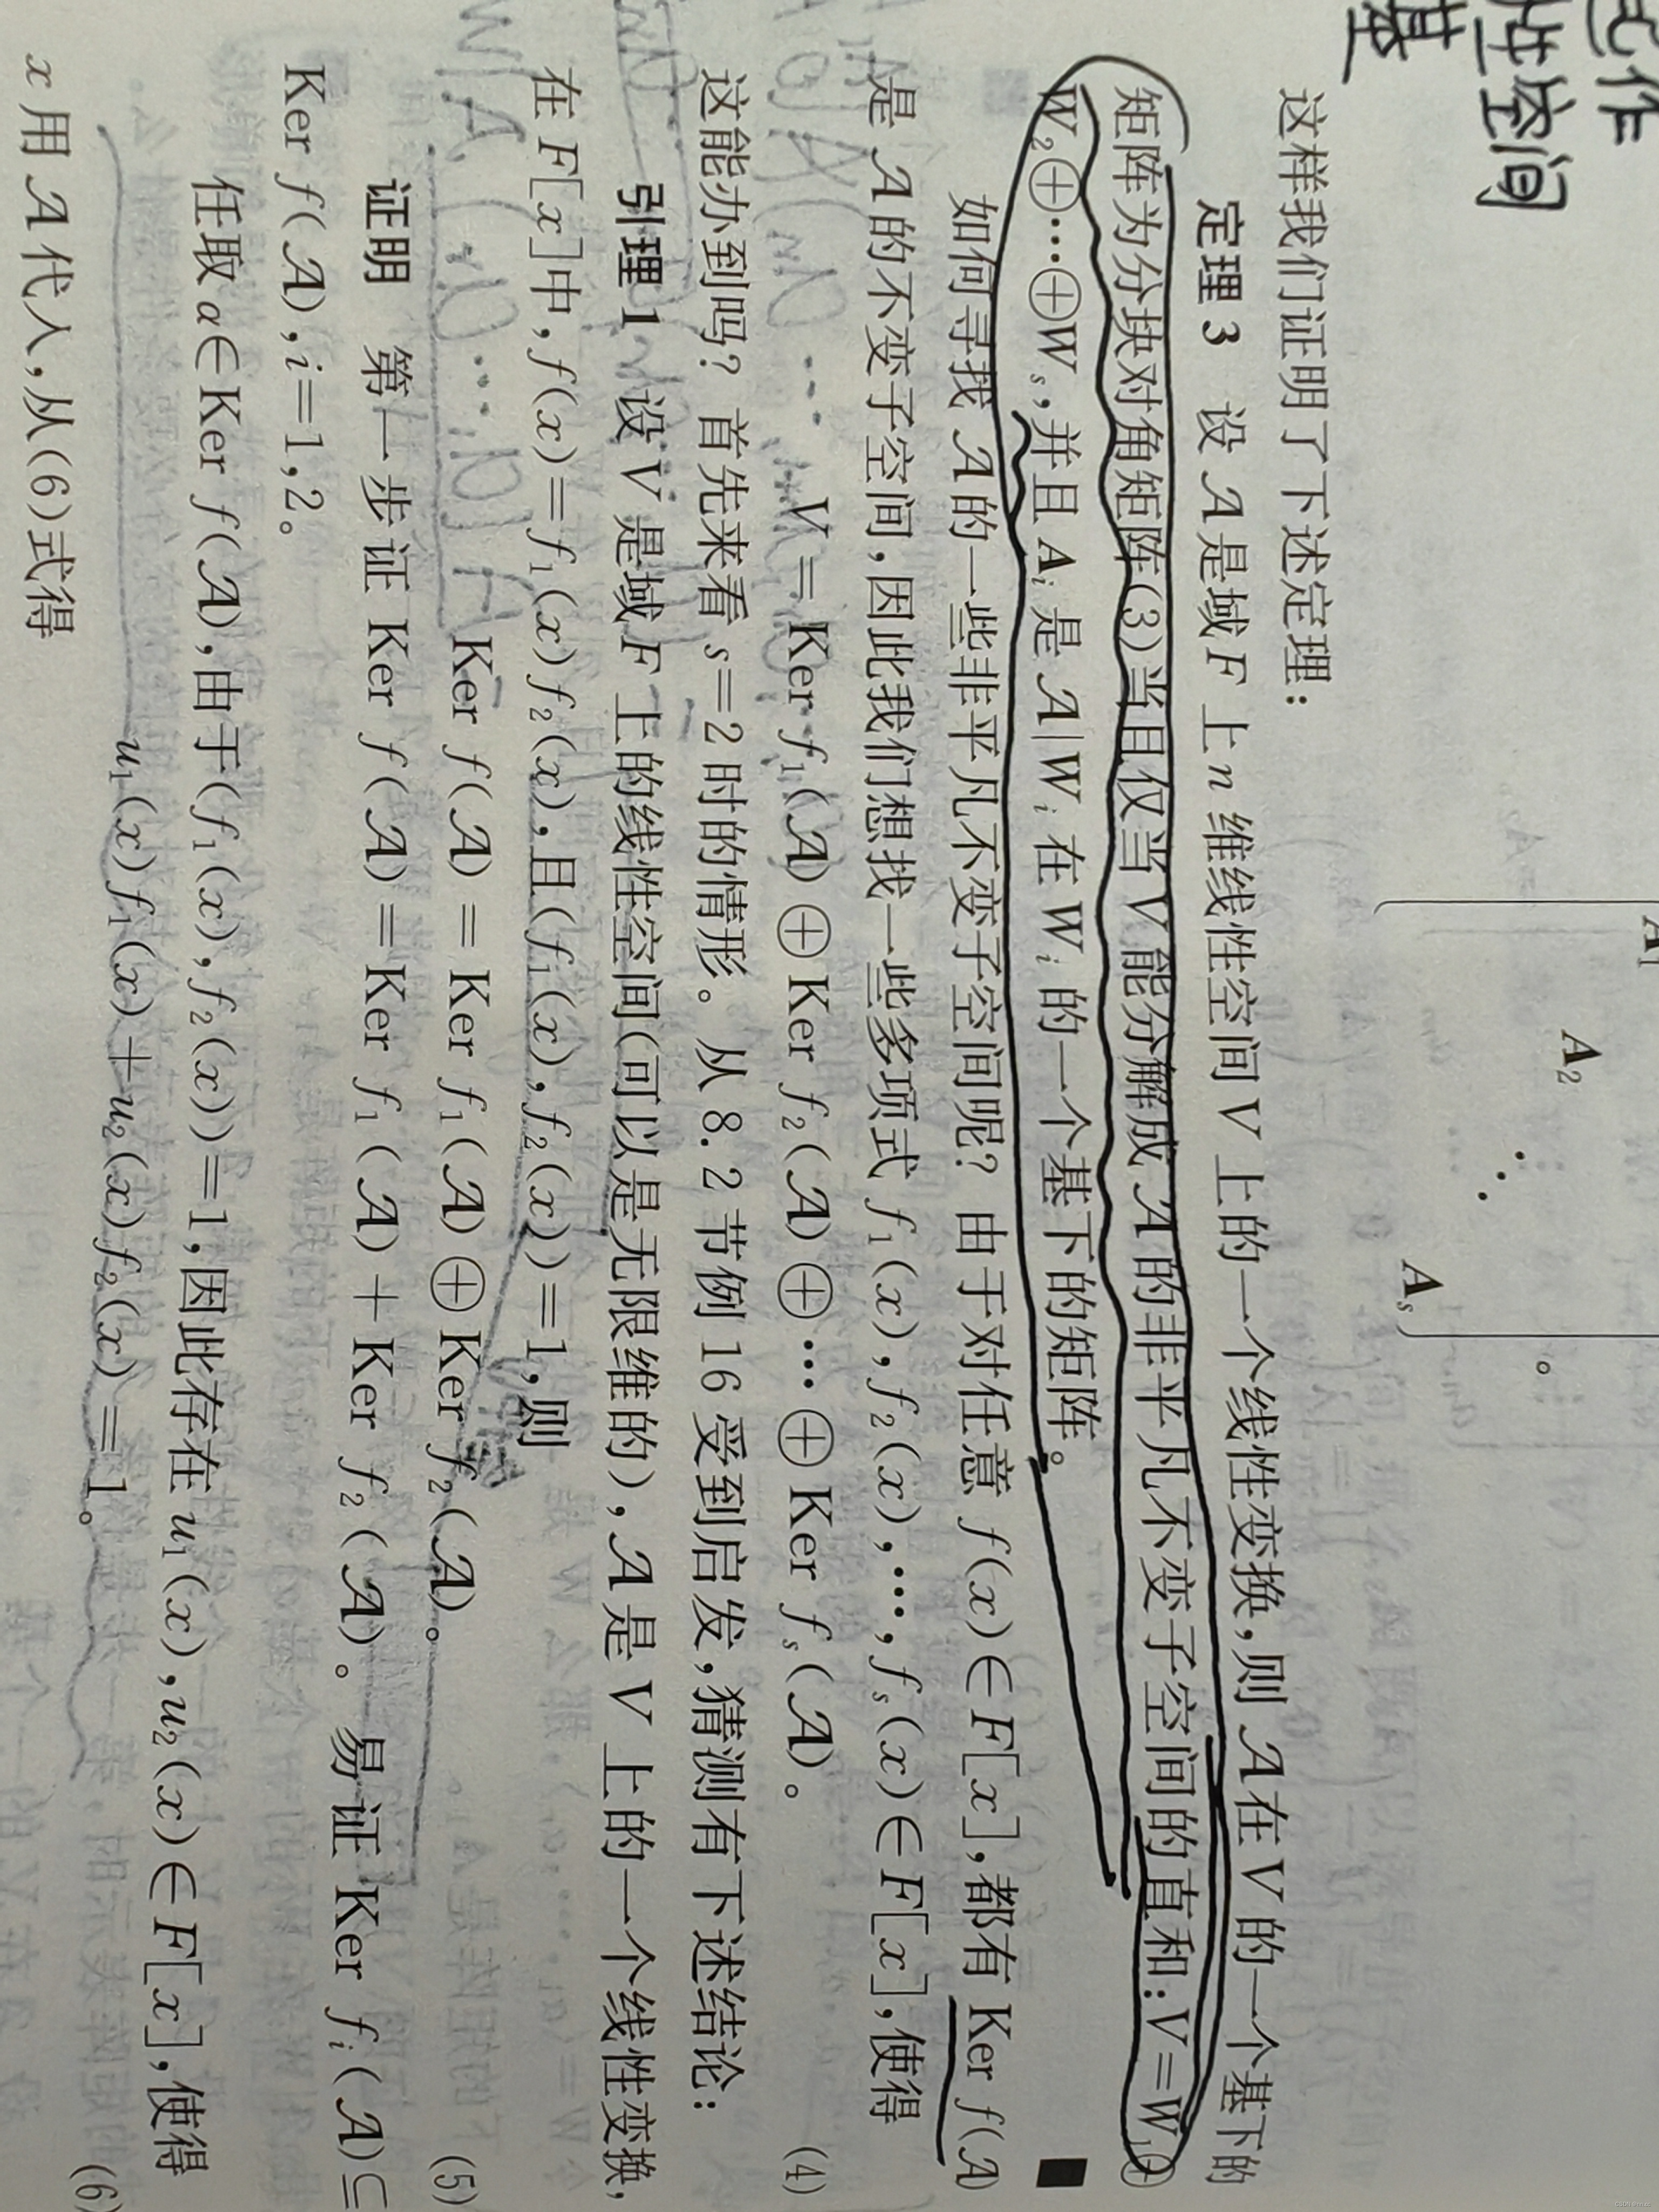 性空间
基
A₁
A₂
⋱
Aₛ
。
这样我们证明了下述定理：
定理 3 设 𝒜 是域 F 上 n 维线性空间 V 上的一个线性变换，则 𝒜 在 V 的一个基下的
矩阵为分块对角矩阵(3)当且仅当 V 能分解成 𝒜 的非平凡不变子空间的直和：V=W₁⊕
W₂⊕⋯⊕Wₛ，并且 Aᵢ 是 𝒜|Wᵢ 在 Wᵢ 的一个基下的矩阵。 ■
如何寻找 𝒜 的一些非平凡不变子空间呢？由于对任意 f(x)∈F[x]，都有 Ker f(𝒜)
是 𝒜 的不变子空间，因此我们想找一些多项式 f₁(x)，f₂(x)，⋯，fₛ(x)∈F[x]，使得
V = Ker f₁(𝒜) ⊕ Ker f₂(𝒜) ⊕ ⋯ ⊕ Ker fₛ(𝒜)。 (4)
这能办到吗？首先来看 s=2 时的情形。从 8.2 节例 16 受到启发，猜测有下述结论：
引理 1 设 V 是域 F 上的线性空间(可以是无限维的)，𝒜 是 V 上的一个线性变换，
在 F[x]中，f(x)=f₁(x)f₂(x)，且(f₁(x)，f₂(x))=1，则
Ker f(𝒜) = Ker f₁(𝒜) ⊕ Ker f₂(𝒜)。 (5)
证明 第一步证 Ker f(𝒜)=Ker f₁(𝒜)+Ker f₂(𝒜)。易证 Ker fᵢ(𝒜)⊆
Ker f(𝒜)，i=1,2。
任取 α∈Ker f(𝒜)，由于(f₁(x)，f₂(x))=1，因此存在 u₁(x)，u₂(x)∈F[x]，使得
u₁(x)f₁(x)+u₂(x)f₂(x)=1。 (6)
x 用 𝒜 代入，从(6)式得